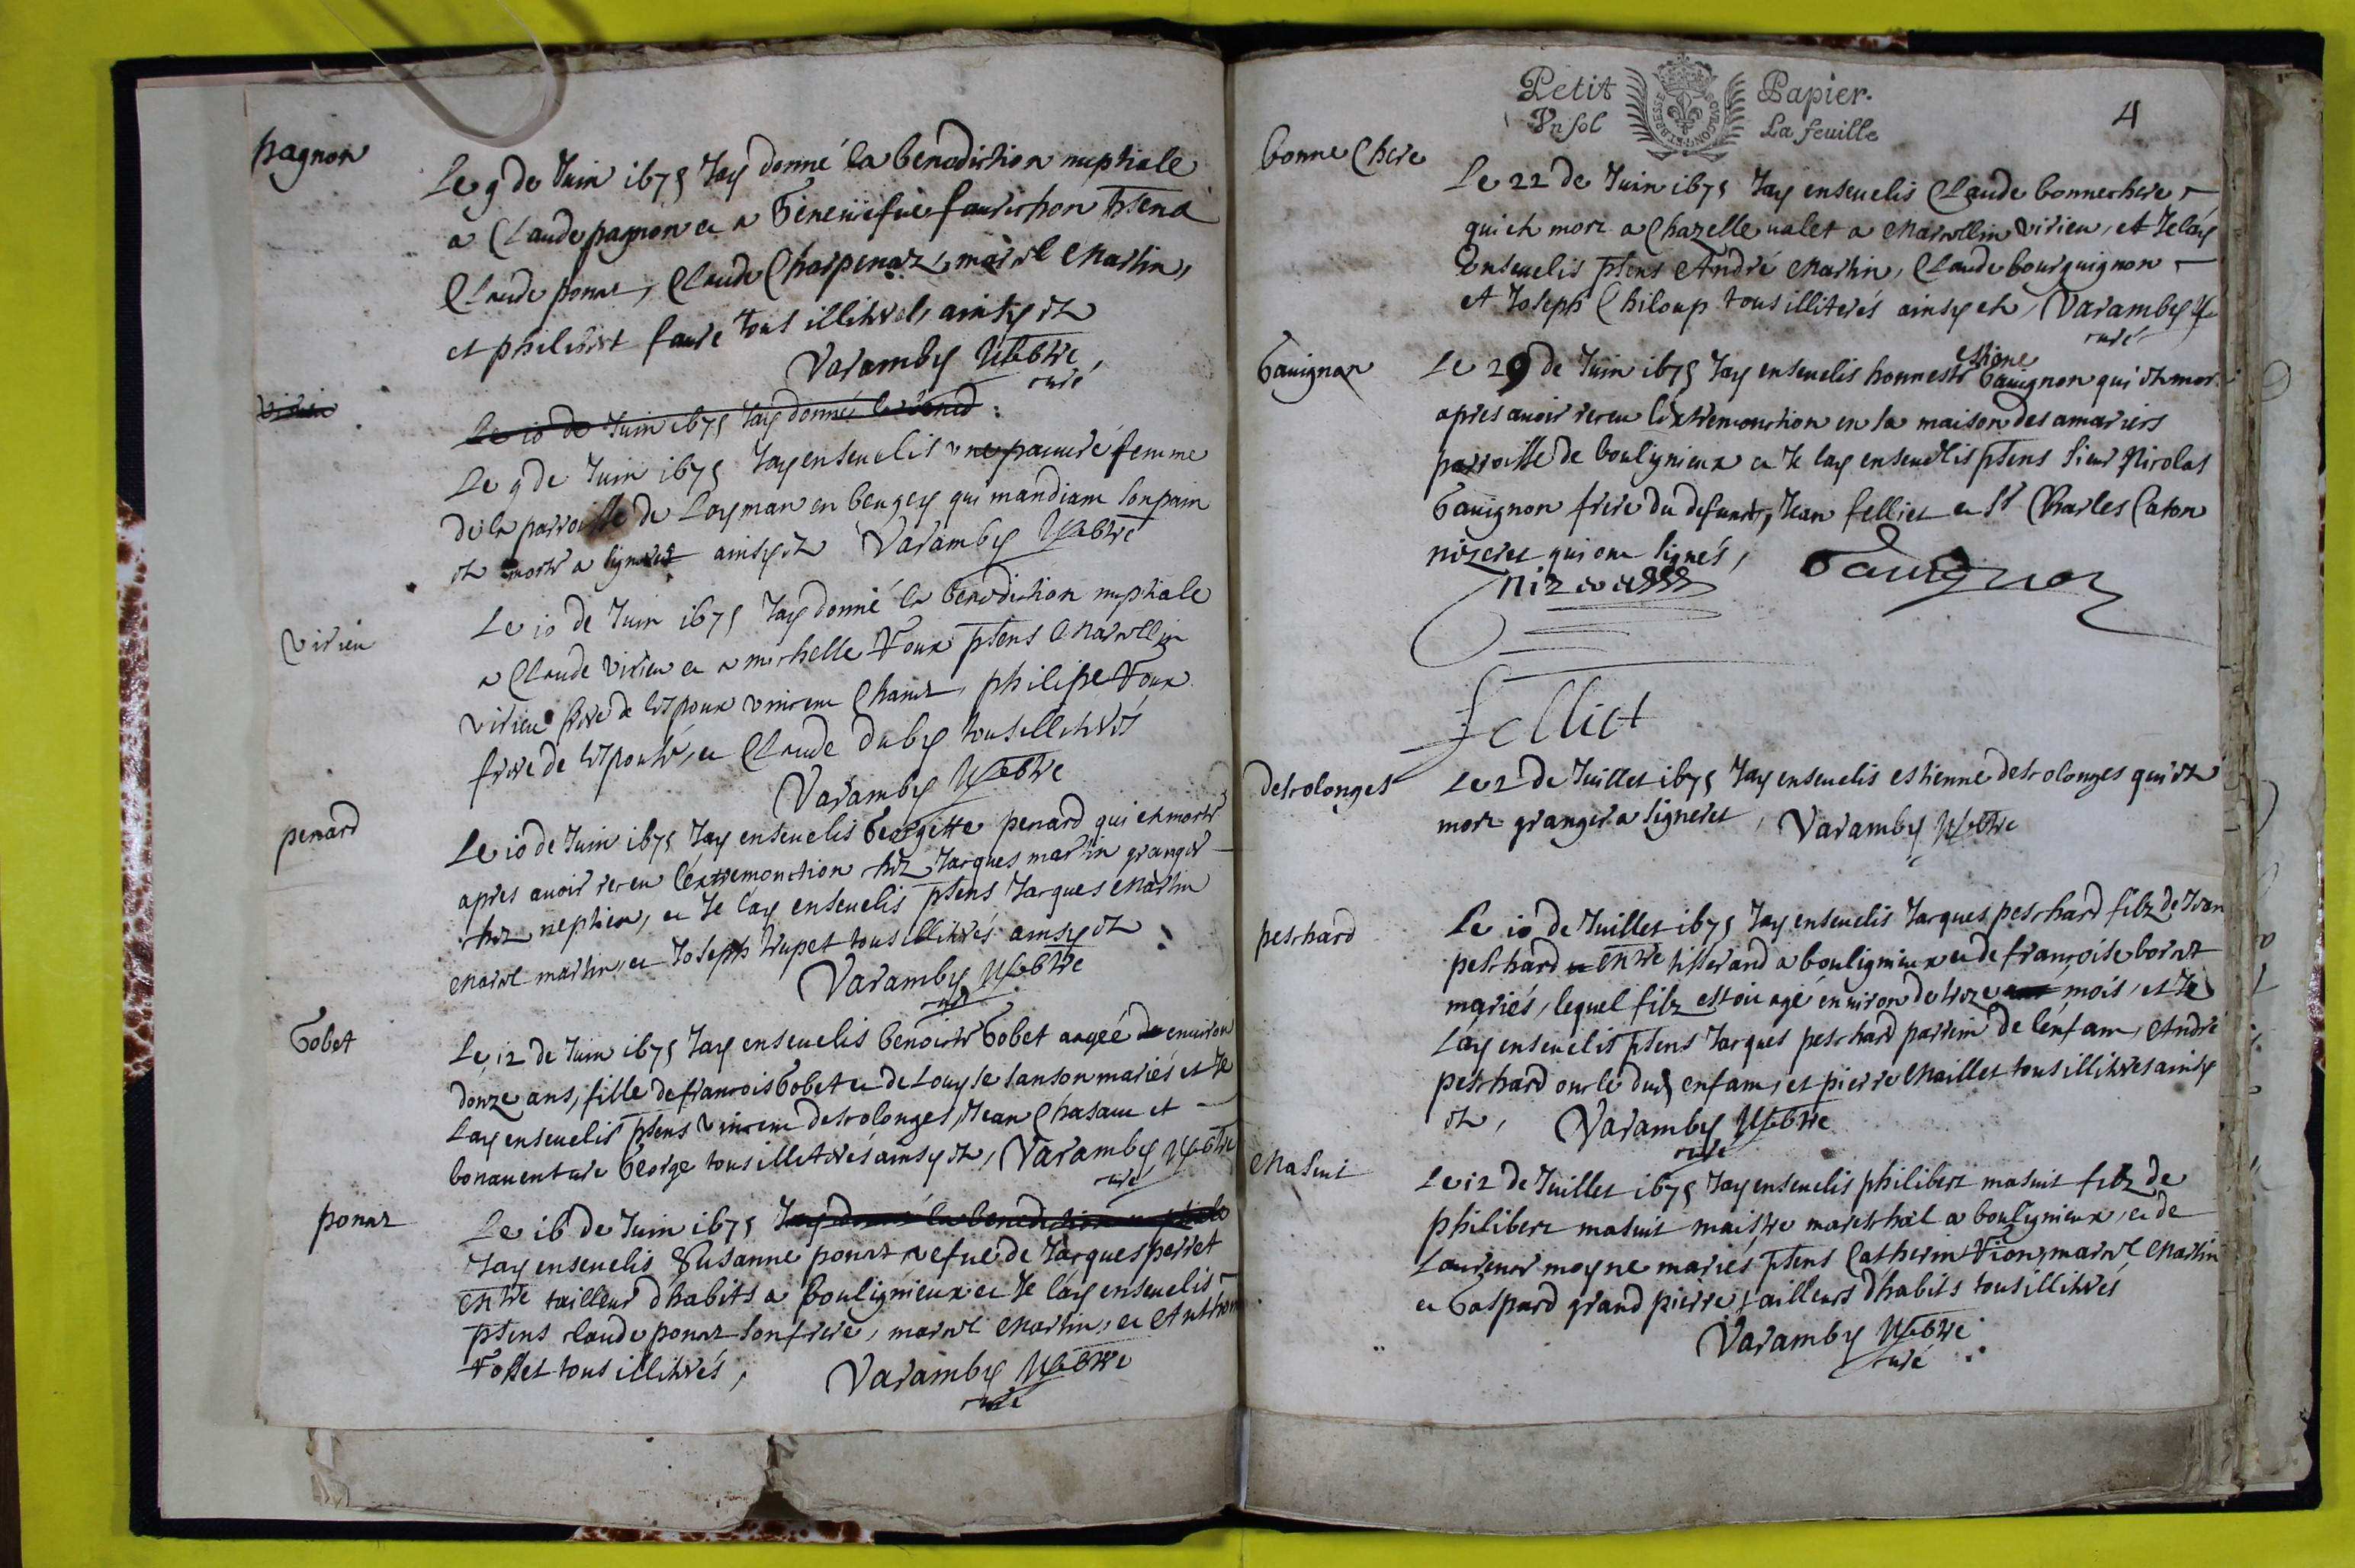 pagnon
Le 9 de Juin 1675 Jay donné la benediction nuptiale
a Claude pagnon et a Geneviefue
Claude ponat, Claude Charpenaz, marcel Martin,
et philibert faure tous illiterés, ainsy est
Varamby
curé
virieu
Le 10 de Juin 1675 Jay donné la bened
Le 9 de Juin 1675 Jay enseuelis vne pauure femme
de la parroisse de Loyman en beugey qui mandiant son pain
est morte a ligneret ainsy est Varamby
virieu
Le 10 de Juin 1675 Jay donné la benediction nuptiale
a Claude virieu et a michelle Foux ptens Marcellin
virieu de lespoux vincent Chanut, philipe Foux
frere de lespouse, et Claude duby tous illiterés
Varamby
penard
Le 10 de Juin 1675 Jay enseuelis Georgette penard qui est morte
apres auoir receu lextremonction chez Jacques martin granger
chez nephieu, et Je lay enseuelis ptens Jacques Martin
marcel martin, et Joseph trupet tous illiterés ainsy est
Varamby
curé
Gobet
Le 12 de Juin 1675 Jay enseuelis benoiste Gobet aagée de enuiron
douze ans, fille de francois Gobet et de Louyse sanson mariés et Je
Lay enseuelis ptens vincent descolonges, Jean Chasaut et
bonauenture George tous illiterés ainsy est, Varamby
curé
ponaz
Le 16 de Juin 1675 Jay donné la benediction nuptiale
Jay enseuelis Susanne ponaz vefue de Jacques perret
tailleur dhabits a Bouligneux et Je lay enseuelis
ptens claude ponaz son frere, marcel Martin, et Anthon
Follet tous illiterés, Varamby
curé
Petit Papier.
Vn sol La feuille
BRESSE
4
bonne Chere
Le 22 de Juin 1675 Jay enseuelis Claude bonnechere
qui est mort a Chazelle ualet a Marcellin virieu, et Je lay
Enseuelis ptens André Martin, Claude bourguignon
et Joseph Chiloup tous illiterés ainsy est, Varamby
curé
Gauignon
estiene
Le 29 de Juin 1675 Jay enseuelis honneste Gauignon qui est mor
apres auoir receu lextremonction en sa maison des amariers
parroisse de boulignieux et Je lay enseuelis ptens sieur Nicolas
Gauignon frere du defunct, Jean felliet et Sr Charles Caton
nizeret qui ont signés,
nizeret Gauignon
felliet
descolonges
Le 2 de Juillet 1675 Jay enseuelis estienne descolonges qui est
mort granger a ligneret, Varamby
peschard
Le 10 de Juillet 1675 Jay enseuelis Jacques peschard filz de Jean
peschard tisserand a boulignieux et de francoise borat
mariés, lequel filz estoit agé enuiron de treze mois, et Je
Lay enseuelis ptens Jacques peschard parrein de lenfant, André
peschard oncle dud enfant, et pierre Maillet tous illiterés ainsy
est, Varamby
curé
Masuit
Le 12 de Juillet 1675 Jay enseuelis philibert masuit filz de
philibert masuit maistre mareschal a boulignieux, et de
Laurence moyne mariés ptens Catherin Fion, marcel Martin
et Gaspard grand pierre tailleurs dhabits tous illiterés
Varamby
curé